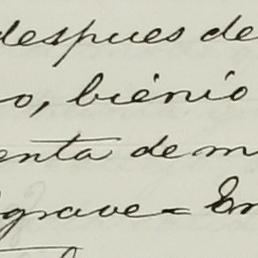 despues de
o, biénio
enta de m
grave = En